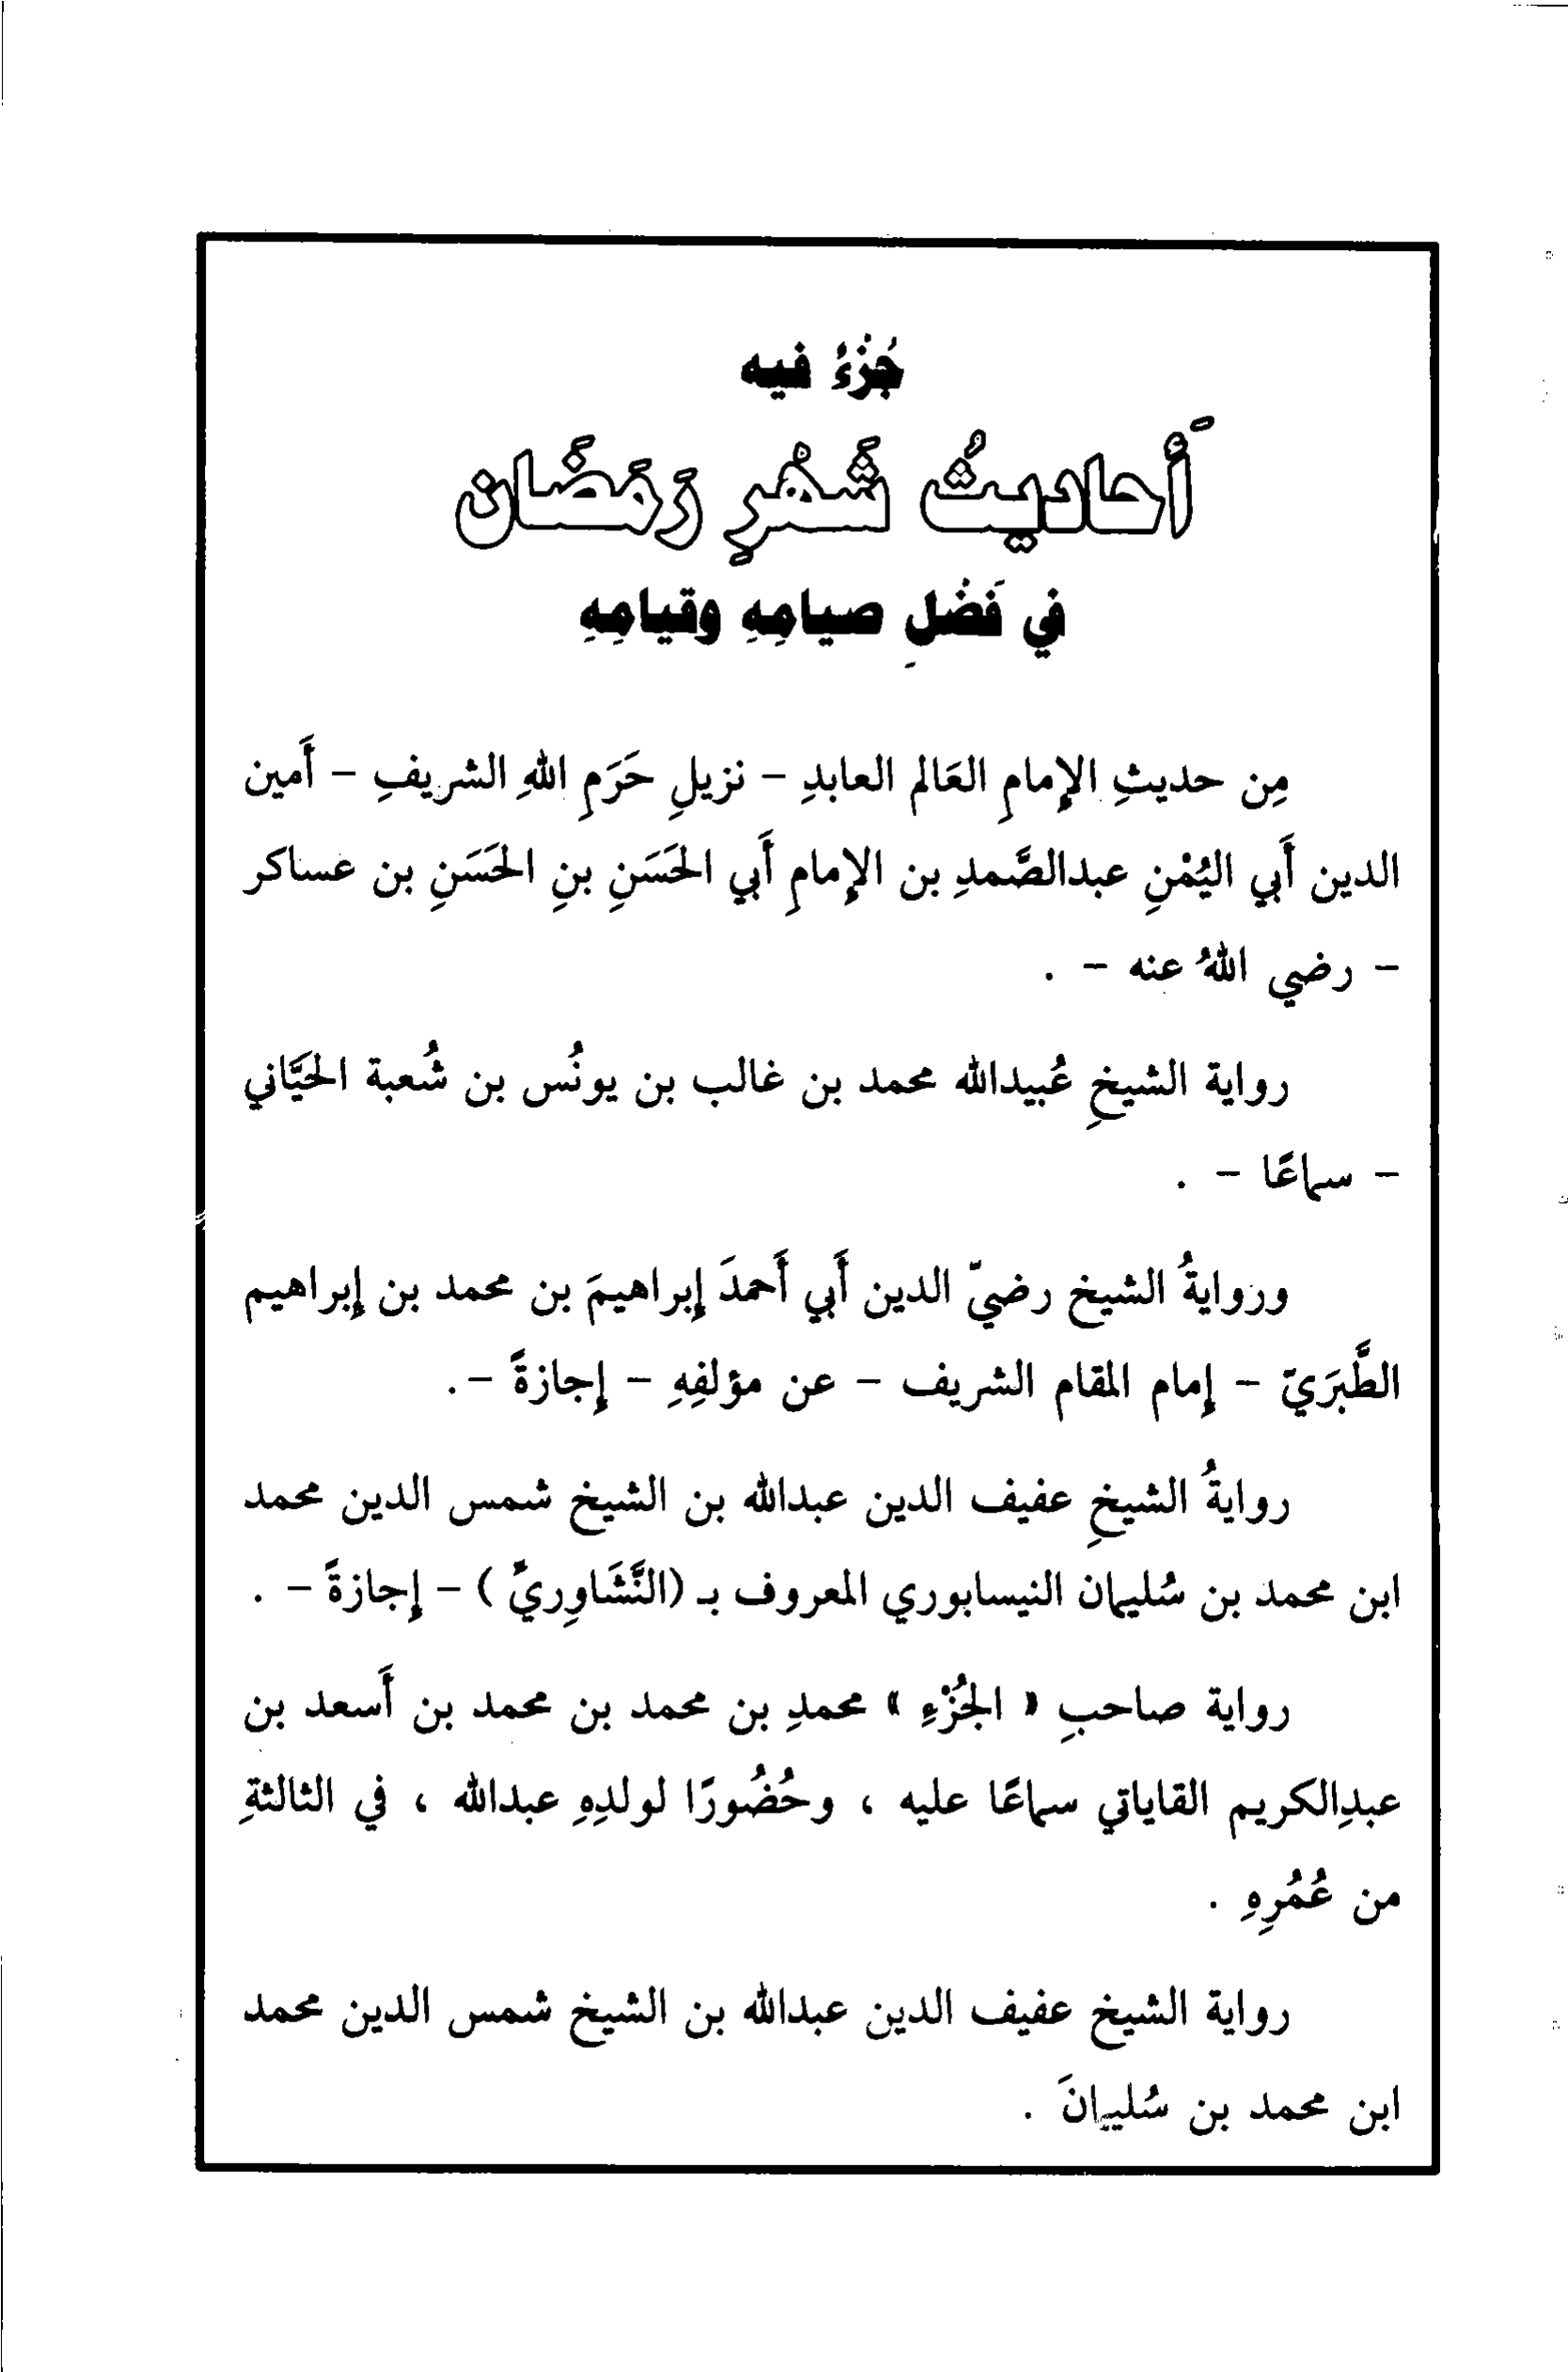 جُزْءُ فيه
أَحاديثُ شَهْرِ رَمَضَان
في فَضْلِ صيامِهِ وقيامِهِ
مِن حديثِ الإِمامِ العَالم العابدِ – نزيلِ حَرَمِ اللهِ الشريفِ – أَمين
الدين أَبي اليُمْنِ عبدالصَّمدِ بن الإِمامِ أَبي الحَسَنِ بنِ الحَسَنِ بن عساكر
– رضي اللهُ عنه – .
رواية الشيخِ عُبيدالله محمد بن غالب بن يونُس بن شُعبة الحَيَّاني
– سماعًا – .
وروايةُ الشيخ رضيّ الدين أَبي أَحمدَ إِبراهيمَ بن محمد بن إِبراهيم
الطَّبَرَيّ – إِمام المقام الشريف – عن مؤلفِهِ – إِجازةً – .
روايةُ الشيخِ عفيف الدين عبدالله بن الشيخ شمس الدين محمد
ابن محمد بن سُليمان النيسابوري المعروف بـ (النَّشَاوِريِّ ) – إِجازةً – .
رواية صاحبِ « الجُزْءِ » محمدِ بن محمد بن محمد بن أَسعد بن
عبدِالكريم القاياتي سماعًا عليه ، وحُضُورًا لولدِهِ عبدالله ، في الثالثةِ
من عُمُرِهِ .
رواية الشيخ عفيف الدين عبدالله بن الشيخ شمس الدين محمد
ابن محمد بن سُليمانَ .